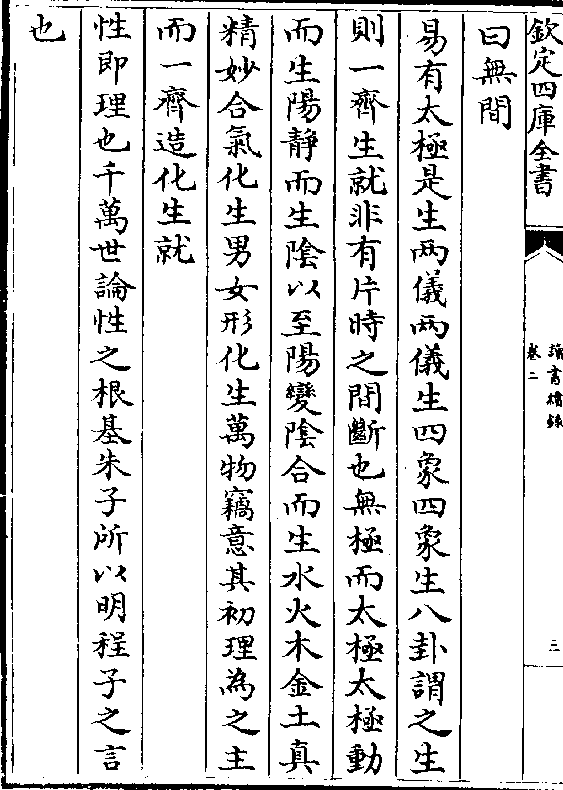 欽定四庫全書
讀書續錄
卷二
三
曰無間
易有太極是生兩儀兩儀生四象四象生八卦謂之生
則一齊生就非有片時之間斷也無極而太極太極動
而生陽靜而生陰以至陽變陰合而生水火木金土真
精妙合氣化生男女形化生萬物竊意其初理為之主
而一齊造化生就
性即理也千萬世論性之根基朱子所以明程子之言
也